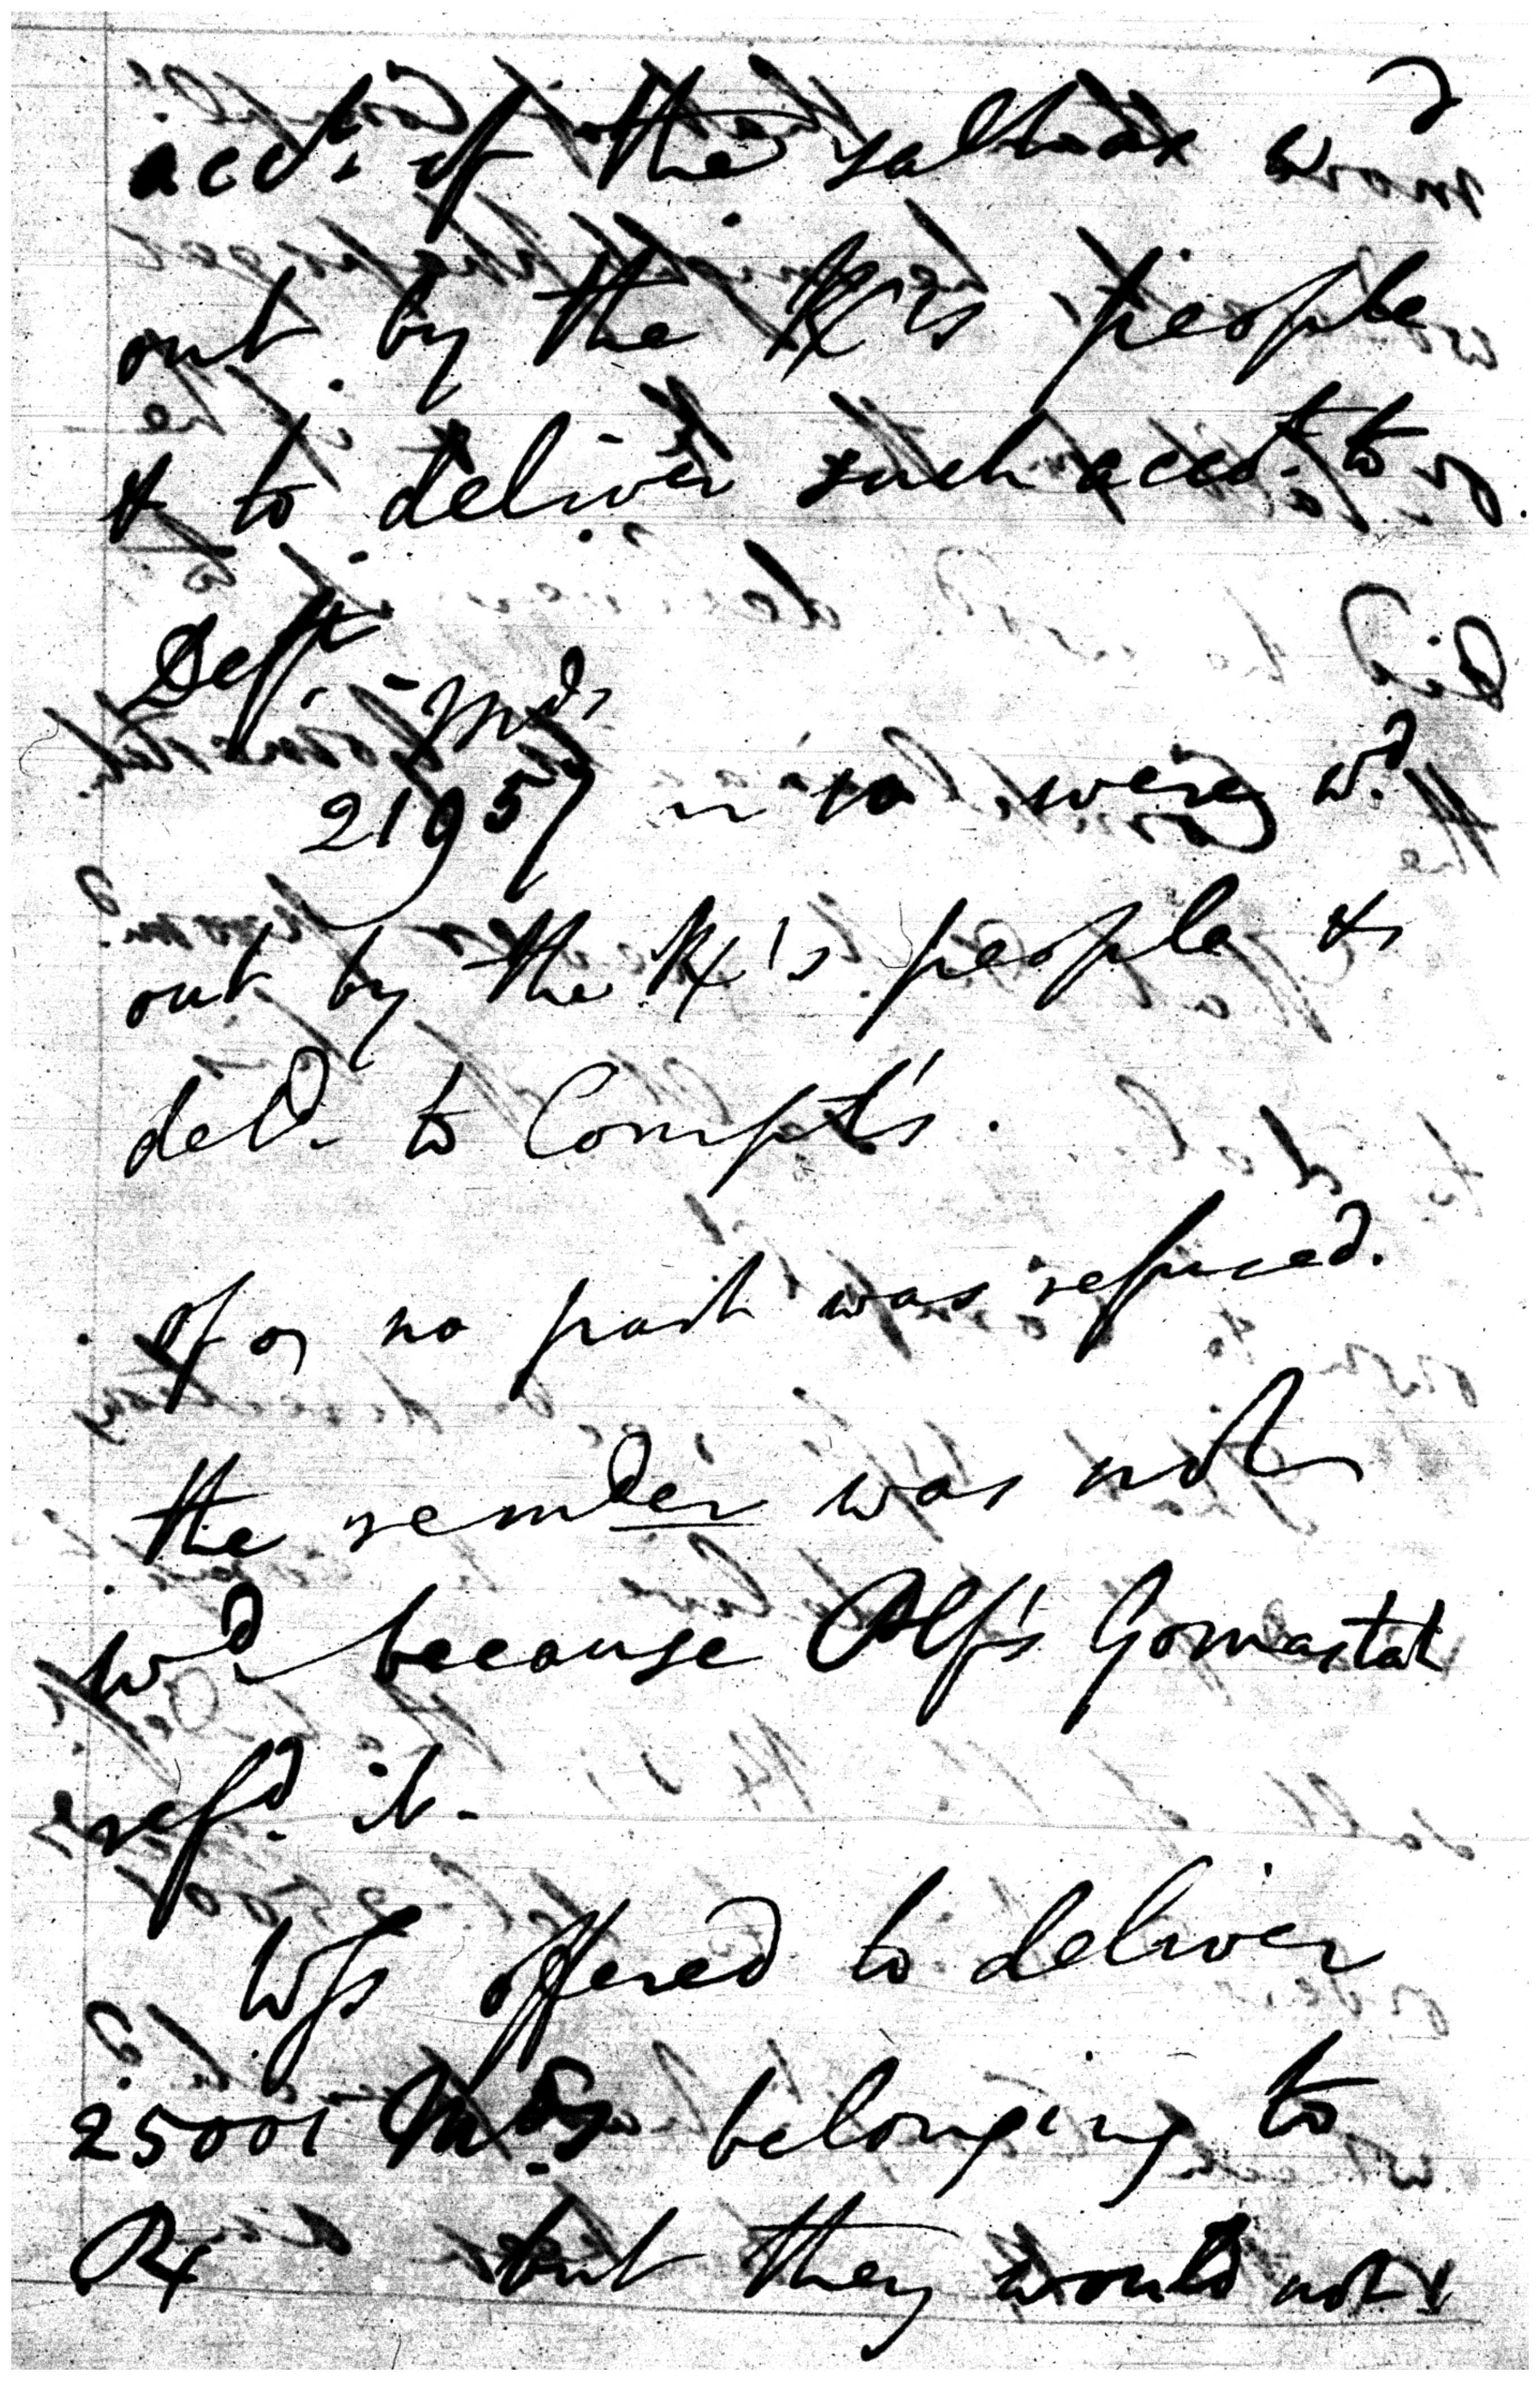 acct. of the salt was wd
out by the Px's people
& to deliver such acct. to
Deft.
mds
21957 were wd.
out by the Px's people &
deld. to Compts.
of no part was refused.
the remder was not
wd. because Plf's Gomastah
refd. it -
Wfs offered to deliver
25001 mds. belonging to
Px but they would not